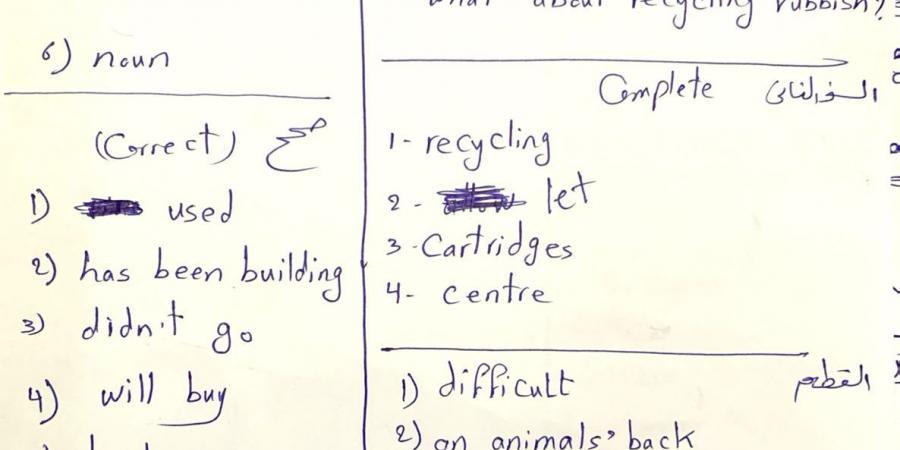 6) noun
(Correct) صح
1) used
2) has been building
3) didn't go
4) will buy
what about recycling rubbish?
Complete
1- recycling
2- let
3- Cartridges
4- centre
القطعة
1) difficult
2) on animals' back